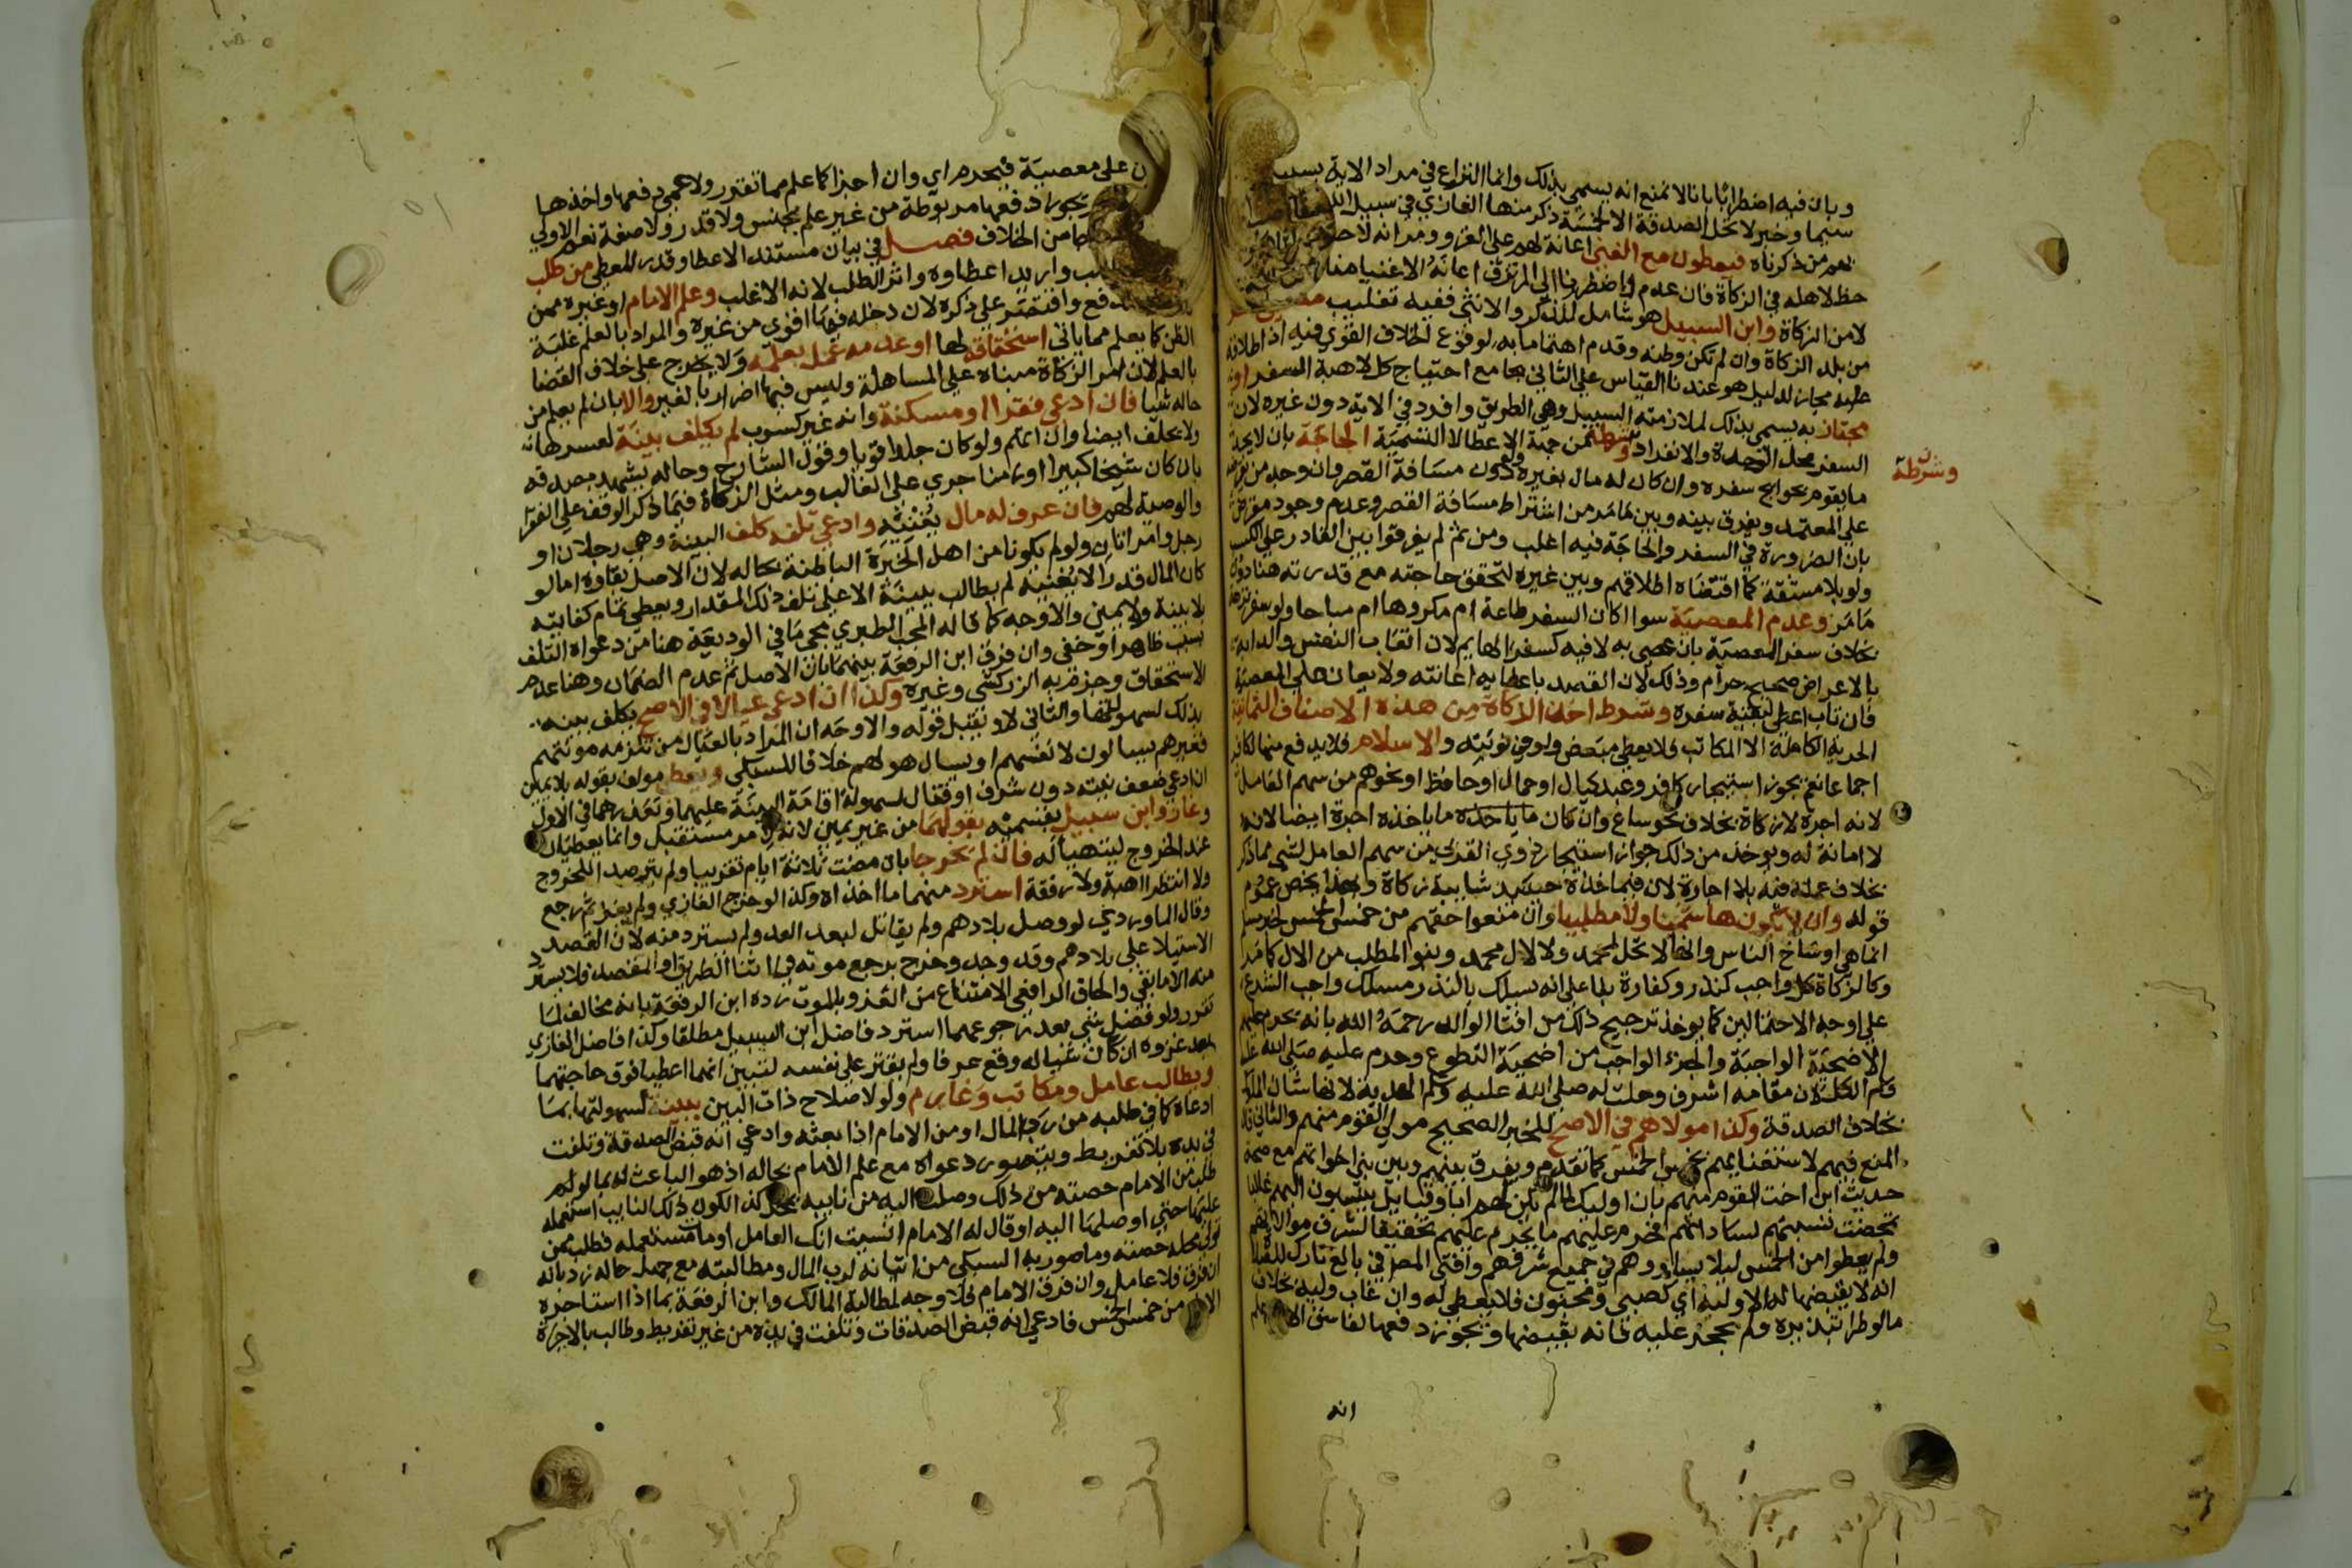 وبان فيه اضطرابا بانا لا نمنع انه يسمى بذلك وانما النزاع في مراد الاية بسبيل
سيما وخبر لا تحل الصدقة الا لخمسة ذكر منها الغازي في سبيل الله
نعم من ذكرناه فيعطون مع الغنى اعانة لهم على الغزو ومر انه لا حظ
حظ لاهله في الزكاة فان عدم واضطررنا الى المرتزق اعانه الاغنيا منا
لا من الزكاة وابن السبيل هو شامل للذكر والانثى ففيه تغليب
من بلد الزكاة وان لم تكن وطنه وقدم اهتماما به لوقوع الخلاف القوي فيه اذ اطلاقه
عليه مجاز لدليل هو عندنا القياس على الثاني بجامع احتياج كل لاهبة السفر او
مجتاز به يسمى بذلك لملازمته السبيل وهي الطريق وافرد في الاية دون غيره لان
السفر محل الوحدة والانفراد وشرطه من جهة الاعطا لا التسمية الحاجة بان لا يجد
وشرطه
ما يقوم بحوايج سفره وان كان له مال بغيره ولو دون مسافة القصر وان وجد من يقرضه
على المعتمد ويفرق بينه وبين ما مر من اشتراط مسافة القصر وعدم وجود مقرض
بان الضرورة في السفر والحاجة فيه اغلب ومن ثم لم يفرقوا بين القادر على الكسب
ولو بلا مشقة كما اقتضاه اطلاقهم وبين غيره لتحقق حاجته مع قدرته هنا دون
ما مر وعدم المعصية سوا اكان السفر طاعة ام مكروها ام مباحا ولو سفر نزهة
بخلاف سفر المعصية بان عصى به لا فيه كسفر الهايم لان اتعاب النفس والدابة
بلا غرض صحيح حرام وذلك لان القصد باعطايه اعانته ولا يعان على المعصية
فان تاب اعطي لبقية سفره وشرط اخذ الزكاة من هذه الاصناف الثمانية
الحرية الكاملة الا المكاتب فلا يعطى مبعض ولو في نوبته والاسلام فلا يدفع منها لكافر
اجماعا نعم يجوز استيجار كافر وعبد كيال او حمال او حافظ او نحوهم من سهم العامل
لانه اجرة لا زكاة بخلاف نحو ساع وان كان ما ياخذه ما ياخذه اجرة ايضا لانه
لا امانة له ويوخذ من ذلك جواز استيجار ذوي القربى من سهم العامل لشي مما ذكر
بخلاف عمله فيه بلا اجارة لان فيما اخذه حينيذ شايبة زكاة وبهذا يخص عموم
قوله وان لا يكون هاشميا ولا مطلبيا وان منعوا حقهم من خمس الخمس لخبر مسلم
انما هي اوساخ الناس وانها لا تحل لمحمد ولا لال محمد وبنو المطلب من الال كما مر
وكالزكاة كل واجب كنذر وكفارة بنا على انه يسلك بالنذر مسلك واجب الشرع
على اوجه الاحتمالين كما يوخذ ترجيح ذلك من افتا الوالد رحمه الله بانه يحرم عليهم
الاضحية الواجبة والجزء الواجب من اضحية التطوع وحرم عليه صلى الله عليه
وسلم الكل لان مقامه اشرف وحلت له صلى الله عليه وسلم الهدية لانها شان الملوك
بخلاف الصدقة وكذا مولاهم في الاصح للخبر الصحيح مولى القوم منهم والثاني قال
المنع فيهم لاستغنايهم بخمس الخمس كما تقدم ويفرق بينهم وبين بني اخواتهم مع صحة
حديث ابن اخت القوم منهم بان اوليك لما لم يكن لهم ابا وقبايل ينسبون اليهم غالبا
تمحضت نسبتهم لساداتهم فحرم عليهم ما يحرم عليهم تحقيقا لشرف موالاتهم
ولم يعطوا من الخمس ليلا يساووهم في جميع شرفهم وافتى المصنف في بالغ تارك للصلاة
انه لا يقبضها له الا وليه اي كصبي ومجنون فلا يعطى له وان غاب وليه بخلاف
ما لو طرا تبذيره ولم يحجر عليه فانه يقبضها ويجوز دفعها لفاسق الا ان علم
انه
ن على معصية فيحرم اي وان اجزا كما علم مما تقرر ولا عمى دفعها واخذها
يجوز دفعها مربوطة من غير علم بجنس ولا قدر ولا صفة نعم الاولى
من الخلاف فصل في بيان مستند الاعطا وقدر المعطى من طلب
واريد اعطاوه واثر الطلب لانه الاغلب وعلم الامام او غيره ممن
دفع واقتصر على ذكره لان دخله فيها اقوى من غيره والمراد بالعلم غلبة
الظن كما يعلم مما ياتي استحقاقه لها او عدمه عمل بعلمه ولا يخرج على خلاف القضا
بالعلم لان امر الزكاة مبناه على المساهلة وليس فيها اضرار بالغير والا بان لم يعلم من
حاله شيا فان ادعى فقرا او مسكنة وانه غير كسوب لم يكلف بينة لعسرها
ولا يحلف ايضا وان اتهم ولو كان جلدا قويا وقول الشارح وحاله يشهد بصدقه
بان كان شيخا كبيرا او زمنا جرى على الغالب ومثل الزكاة فيما ذكر الوقف على الفقرا
والوصية لهم فان عرف له مال يغنيه وادعى تلفه كلف البينة وهي رجلان او
رجل وامراتان ولو لم يكونا من اهل الخبرة الباطنة بحاله لان الاصل بقاوه اما لو
كان المال قدرا لا يغنيه لم يطالب ببينة الا على تلف ذلك المقدار ويعطى تمام كفايته
بلا بينة ولا يمين والاوجه كما قاله المحب الطبري مجي ما في الوديعة هنا من دعواه التلف
بسبب ظاهر او خفي وان فرق ابن الرفعة بينهما بان الاصل ثم عدم الضمان وهنا عدم
الاستحقاق وجزم به الزركشي وغيره وكذا ان ادعى عيالا في الاصح يكلف بينة
بذلك لسهولتها والثاني لا ويقبل قوله والاوجه ان المراد بالعيال من تلزمه موننهم
فغيرهم يسالون لانفسهم او يسال هو لهم خلافا للسبكي ويعطى مولف بقوله بلا يمين
ان ادعى ضعف نيته دون شرف او قتال لسهولة اقامة البينة عليهما وتعذرها في الاول
وغاز وابن سبيل بقسميه بقولهما من غير يمين لانه لامر مستقبل وانما يعطيان
عند الخروج ليتهيا له فان لم يخرجا بان مضت ثلاثة ايام تقريبا ولم يترصدا للخروج
ولا انتظرا اهبة ولا رفقة استرد منهما ما اخذاه وكذا لو خرج الغازي ولم يغز ثم رجع
وقال الماوردي لو وصل بلادهم ولم يقاتل لبعد العدو لم يسترد منه لان القصد
الاستيلا على بلادهم وقد وجد وخرج برجع موته في اثنا الطريق او المقصد فلا يسترد
منه الا ما بقي والحاق الرافعي الامتناع من الغزو بالموت رده ابن الرفعة بانه مخالف لما
تقرر ولو فضل شي بعد رجوعهما استرد فاضل ابن السبيل مطلقا وكذا فاضل الغازي
بعد غزوه ان كان شيا له وقع عرفا ولم يقتر على نفسه لتبين انهما اعطيا فوق حاجتهما
ويطالب عامل ومكاتب وغارم ولو لاصلاح ذات البين ببينة لسهولتها بما
ادعاه كان طلبه من رب المال او من الامام اذا بعثه وادعى انه قبض الصدقة وتلفت
في يده بلا تفريط ويتصور دعواه مع علم الامام بحاله اذ هو الباعث له بما لو لم
طلب من الامام حصته من ذلك وصلت اليه من نايبه بمحل كذا لكون ذلك النايب استعمله
عليها حتى اوصلها اليه او قال له الامام انسيت انك العامل او مات مستعمله فطلب ممن
تولى محله حصته وما صور به السبكي من اتيانه لرب المال ومطالبته مع جهل حاله رد بانه
ان فرق فلا عامل وان فرق الامام فلا وجه لمطالبة المالك وابن الرفعة بما اذا استاجره
من خمس الخمس فادعى انه قبض الصدقات وتلفت في يده من غير تفريط وطالب بالاجرة